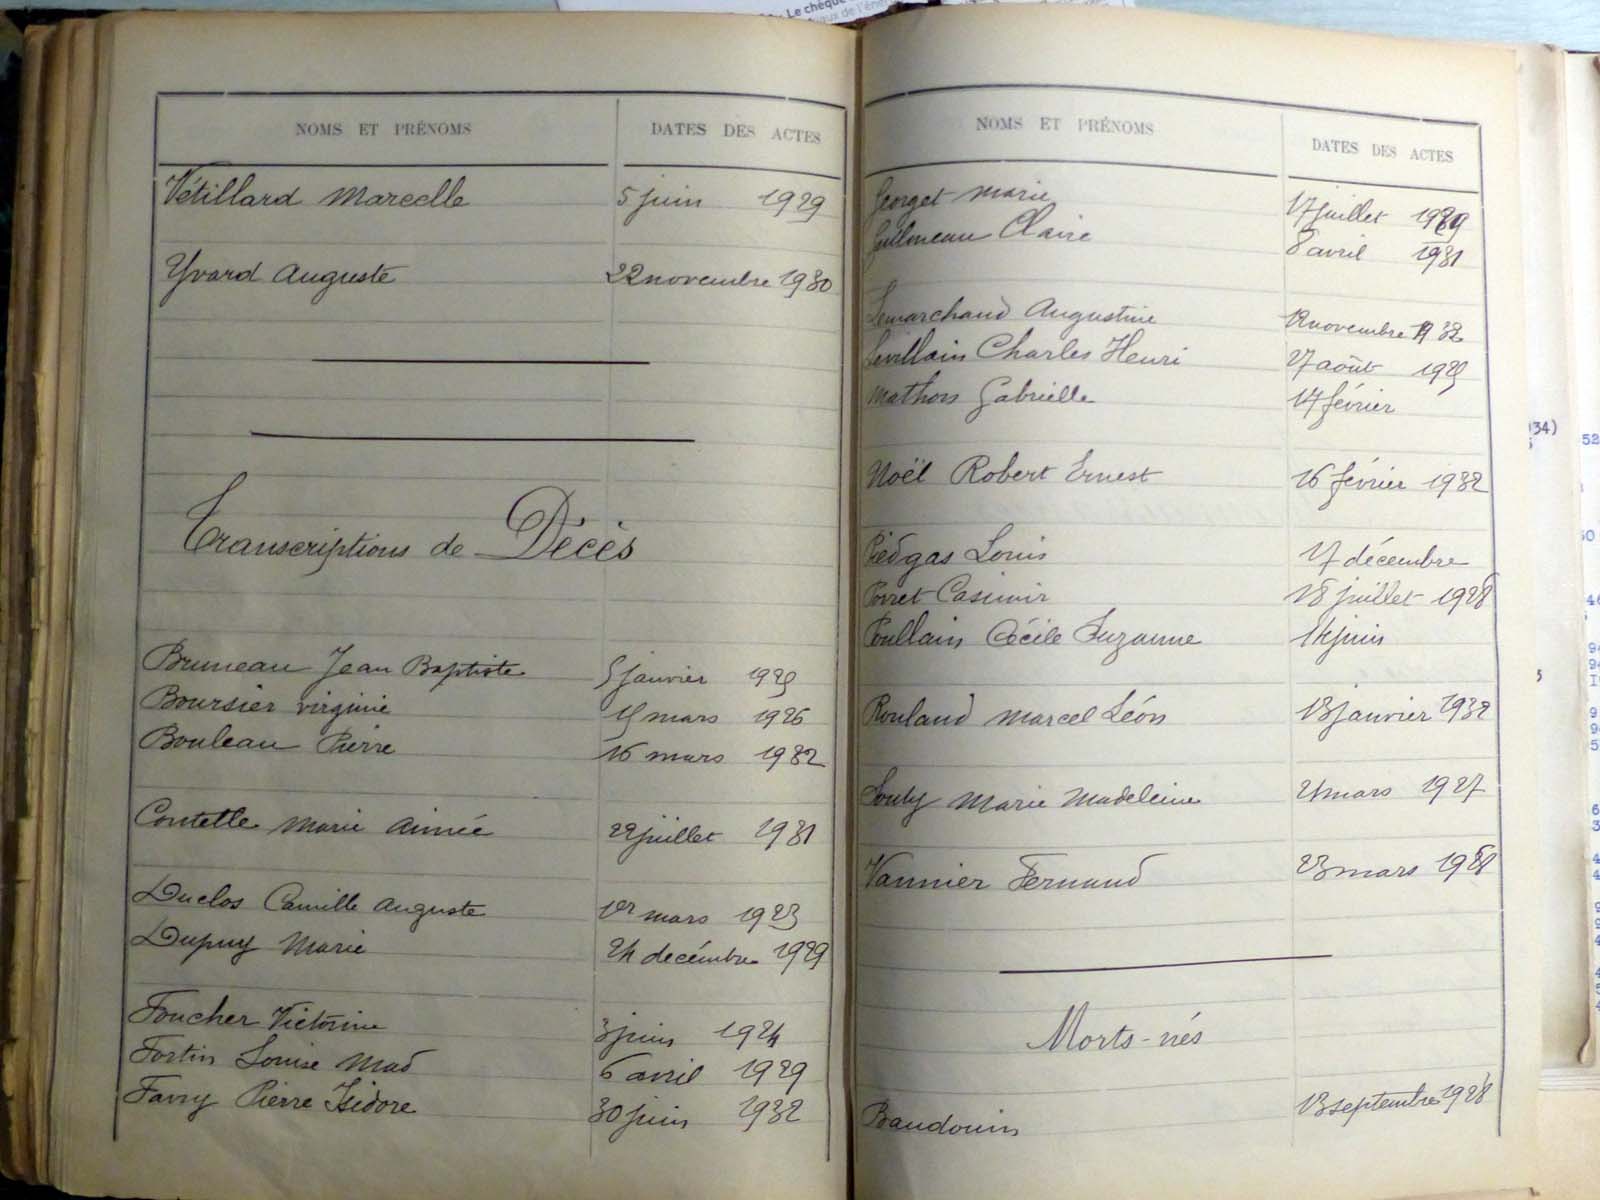 Le chèque
NOMS ET PRÉNOMS DATES DES ACTES
Vétillard Marcelle 5 juin 1929
Yvard Auguste 22 novembre 1930
Transcriptions de Décès
Bruneau Jean Baptiste 5 janvier 1925
Boursier virginie 15 mars 1926
Bouleau Pierre 16 mars 1932
Contelle Marie Aimée 22 juillet 1931
Duclos Camille Auguste 1er mars 1923
Dupuy Marie 24 decémbre 1929
Foucher Victorine 3 juin 1924
Fortin Louise Mad 6 avril 1929
Favry Pierre Isidore 30 juin 1932
NOMS ET PRÉNOMS DATES DES ACTES
Georget Marie 17 juillet
Guilmeau Claire 8 avril 1931
Lemarchand Augustine novembre
Levillain Charles Henri 27 août 1925
Mathon Gabrielle 17 février
Noël Robert Ernest 16 février 1932
Piedgas Louis 17 décembre
Poret Casimir 18 juillet 1928
Poullain Cécile Suzanne 14 juin
Rouland Marcel Léon 13 janvier 1932
Souty Marie Madeleine mars 1927
Vannier Fernand 23 mars
Morts-nés
Baudouin 13 septembre 1928